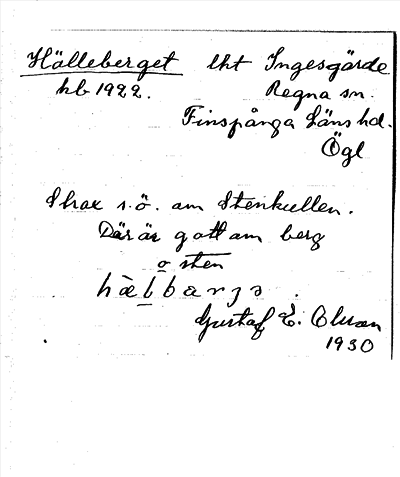 Hälleberget lht Ingesgärde
hb 1922. Regna sn.
Finspånga Läns hd.
Ögl
Strax s.ö. om Stenkullen.
Där är gott om berg
o sten
Gustaf E. Olsson
1930